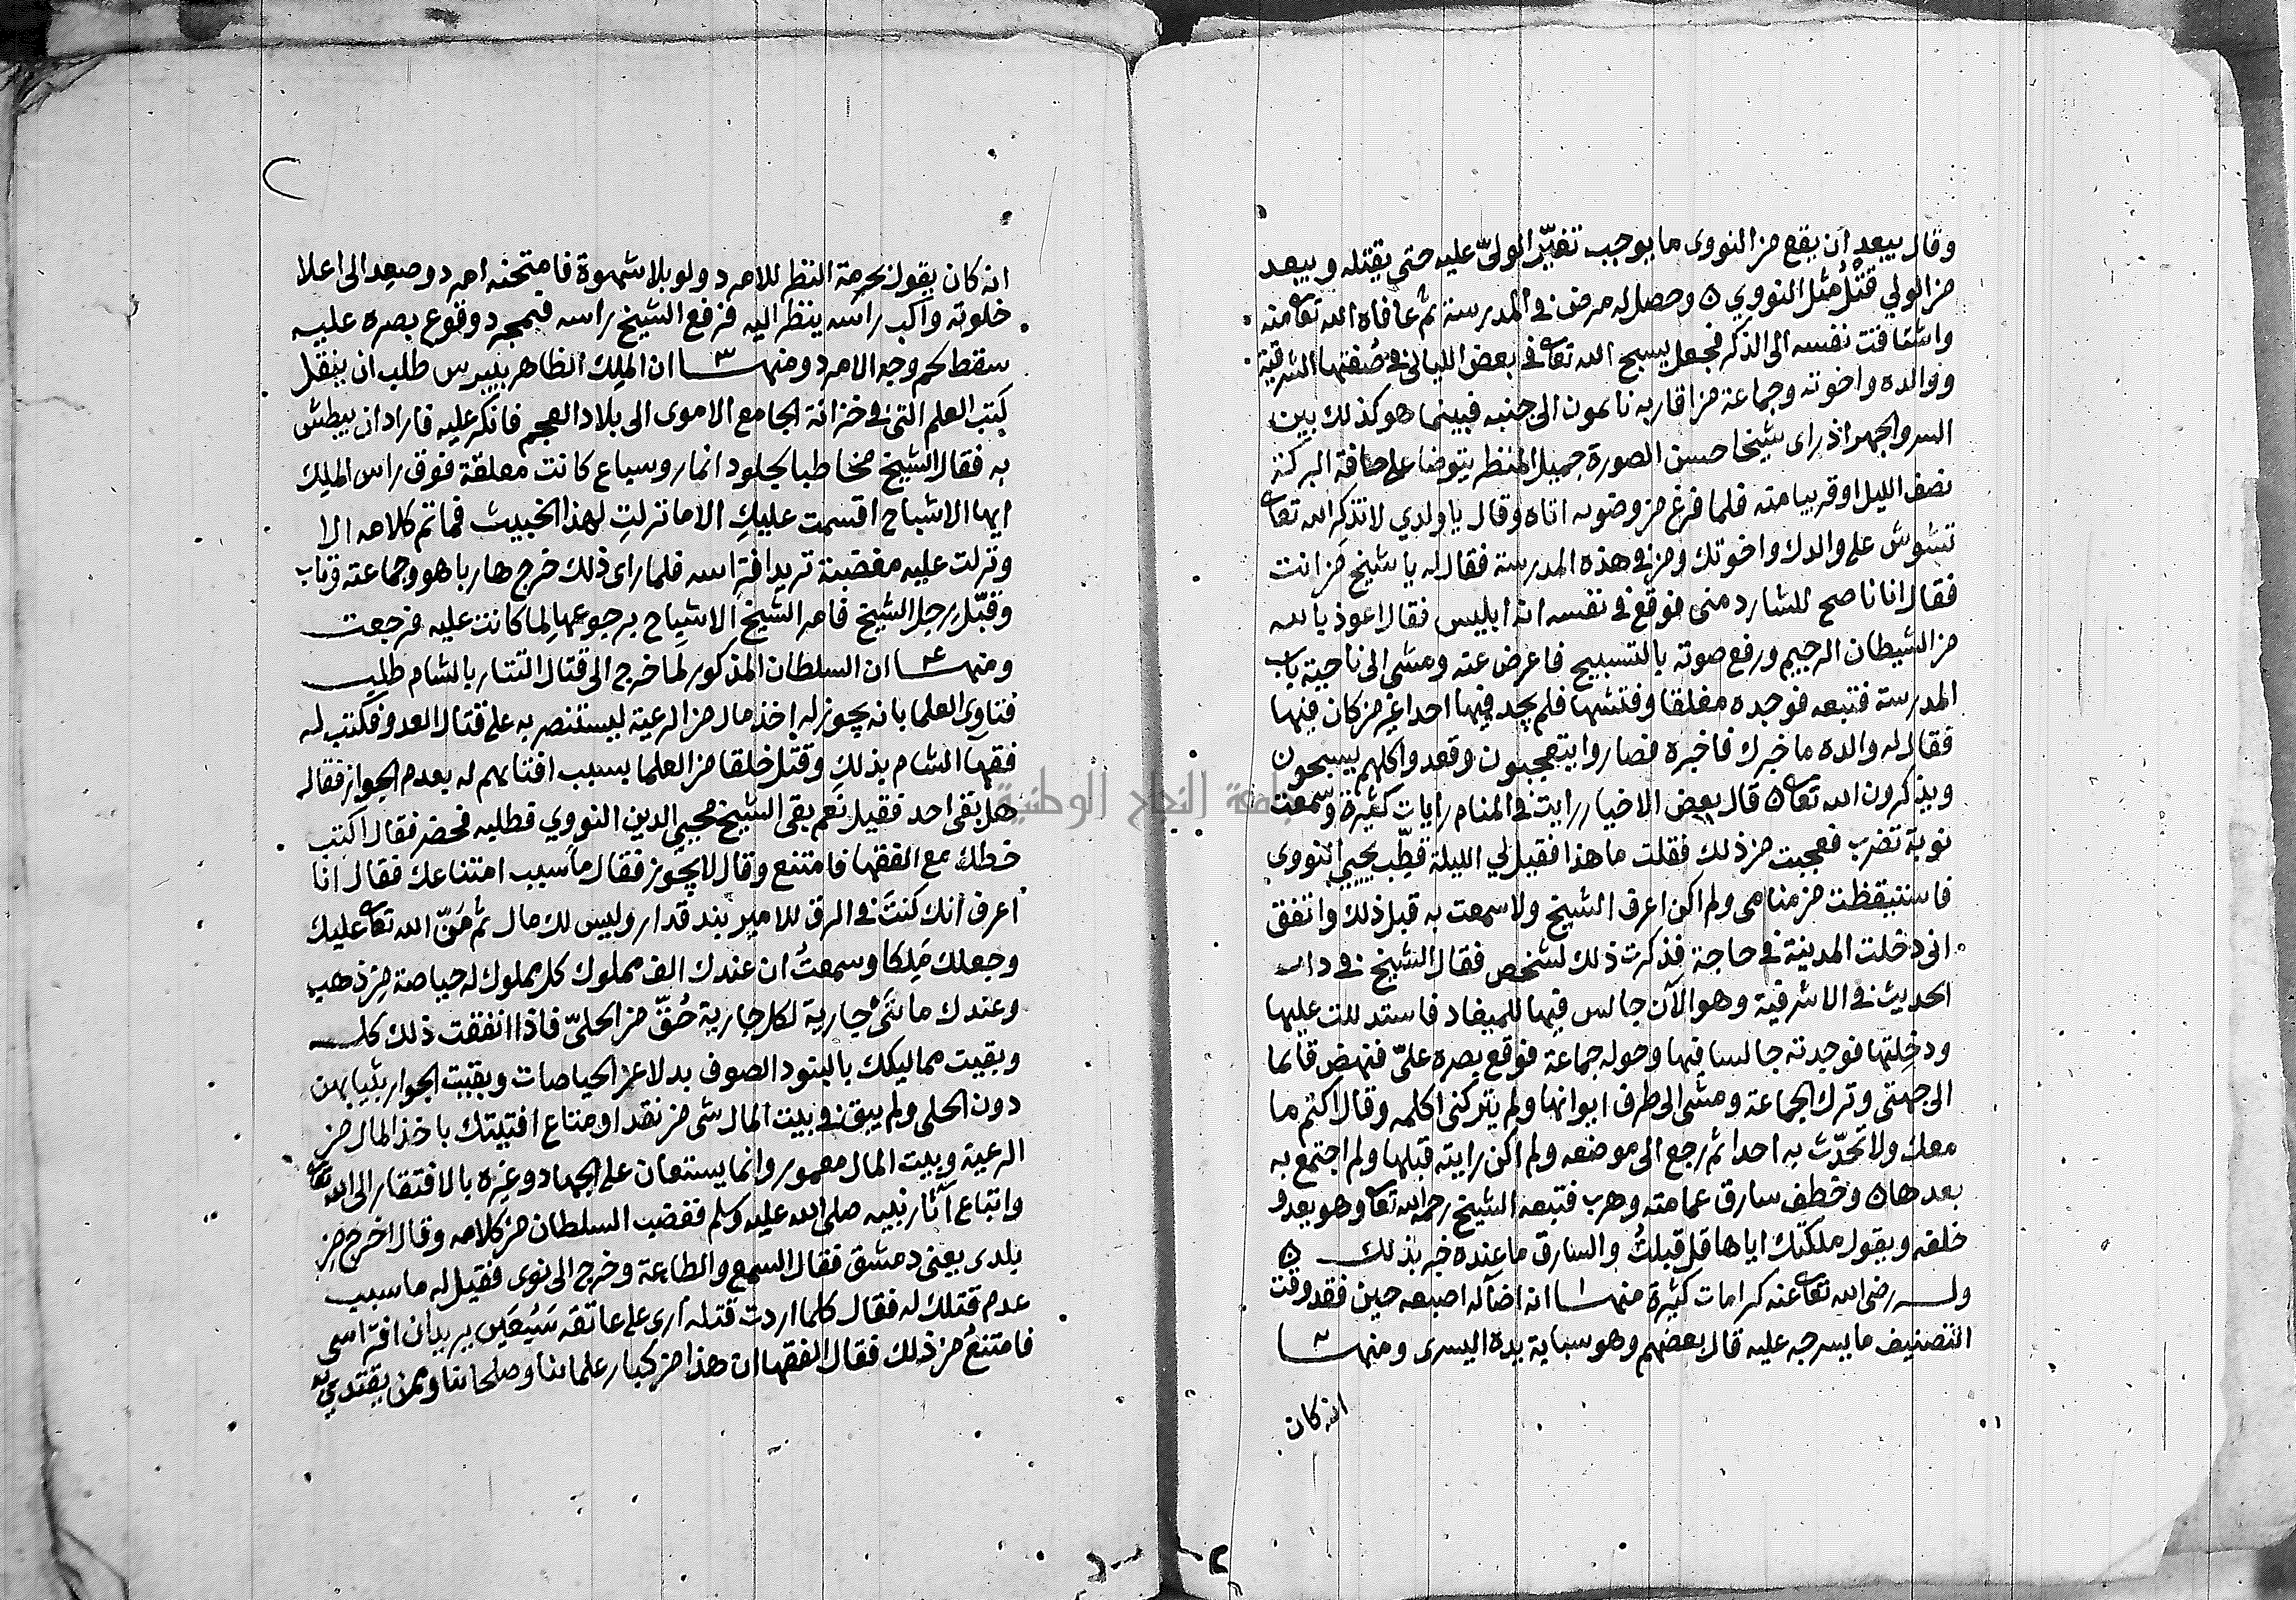 وقال يبعد ان يقع من النووى ما يوجب تغيّر الولىّ عليه حتى يقتله ويبعد
من الولي قتْلُ مثل النووي ه وحصل له مرض فى المدرسة ثم عافاه الله تعا منه
واشتاقت نفسه الى الذكر فجعل يسبح الله تعا فى بعض الليالى فى صُفتها الشرقية
ووالده واخوته وجماعة من اقاربه نائمون الى جنبه فبينما هو كذلك بين
السر والجهر اذ راى شيخا حسن الصورة جميل المنظر يتوضا على حافة البركة
نصف الليل او قريبا منه فلما فرغ من وضوئه اتاه وقال يا ولدي لا تذكر الله تعا
تشوش على والدك واخوتك ومن فى هذه المدرسة فقال له يا شيخ من انت
فقال انا ناصح للشارد منى فوقع فى نفسه انه ابليس فقال اعوذ بالله
من الشيطان الرجيم ورفع صوته بالتسبيح فاعرض عنه ومشى الى ناحية باب
المدرسة فتبعه فوجده مغلقا وفتشها فلم يجد فيها احدا غير من كان فيها
فقال له والده ما خبرك فاخبره فصاروا يتعجبون وقعدوا كلهم يسبحون
ويذكرون الله تعا ه قال بعض الاخيار رايت فى المنام رايات كثيرة وسمعت
نوبة تضرب فعجبت من ذلك فقلت ما هذا فقيل لي الليلة قطّب يحيى النووى
فاستيقظت من منامى ولم اكن اعرف الشيخ ولا سمعت به قبل ذلك واتفق
انى دخلت المدينة فى حاجة فذكرت ذلك لشخص فقال الشيخ فى دار
الحديث فى الاشرفية وهو الآن جالس فيها للميعاد فاستدللت عليها
ودخلتها فوجدته جالسا فيها وحوله جماعة فوقع بصره علىّ فنهض قائما
الى جهتى وترك الجماعة ومشى الى طرف ايوانها ولم يتركنى اكلمه وقال اكتم ما
معك ولا تحدّث به احدا ثم رجع الى موضعه ولم اكن رايته قبلها ولم اجتمع به
بعدها ه وخطف سارق عمامته وهرب فتبعه الشيخ رحمه الله تعا وهو يعدو
خلفه ويقول ملكتك اياها قل قبلتُ والسارق ما عنده خبر بذلك ه
وله رضى الله تعا عنه كرامات كثيرة منها ١ انه اضآ له اصبعه حين فقد وقت
التصنيف ما يسرجه عليه قال بعضهم وهو سبابة يده اليسرى ومنها ٢
انه كان
انه كان يقول بحرمة النظر للامرد ولو بلا شهوة فامتحنه امرد وصعد الى اعلا
خلوته واكب راسه ينظر اليه فرفع الشيخ راسه فبمجرد وقوع بصره عليه
سقط لحم وجه الامرد ومنها ٣ ان الملك الظاهر بيبرس طلب ان ينقل
كتب العلم التى فى خزانة الجامع الاموى الى بلاد العجم فانكر عليه فاراد ان يبطش
به فقال الشيخ مخاطبا لجلود انمار وسباع كانت معلقة فوق راس الملك
ايها الاشباح اقسمت عليكِ الا ما نزلتِ لهذا الخبيث فما تم كلامه الا
ونزلت عليه مغضبة تريد افتراسه فلما راى ذلك خرج هاربا هو وجماعته وتاب
وقبّل رجل الشيخ فامر الشيخ الاشباح برجوعها لما كانت عليه فرجعت
ومنها ٤ ان السلطان المذكور لما خرج الى قتال التتار بالشام طلب
فتاوى العلما بانه يجوز له اخذ مال من الرعية ليستنصر به على قتال العدو فكتب له
فقهآ الشام بذلك وقتل خلقا من العلما بسبب افتائهم له بعدم الجواز فقال
هل بقى احد فقيل نعم بقى الشيخ محيي الدين النووي فطلبه فحضر فقال اكتب
خطك مع الفقها فامتنع وقال لا يجوز فقال ما سبب امتناعك فقال انا
اعرف انك كنتَ فى الرق للامير بندقدار وليس لك مال ثم مَنّ الله تعا عليك
وجعلك مَلِكا وسمعتُ ان عندك الف مملوك كل مملوك له حياصة من ذهب
وعندك مائتىْ جارية لكل جارية حُقّ من الحلىّ فاذا انفقت ذلك كله
وبقيت مماليكك بالبنود الصوف بدلا عن الحياصات وبقيت الجوار بثيابهن
دون الحلى ولم يبق فى بيت المال شى من نقد او متاع افتيتك باخذ المال من
الرعية وبيت المال معمور وانما يستعان على الجهاد وغيره بالافتقار الى الله تعا
واتباع آثار نبيه صلى الله عليه وسلم فغضب السلطان من كلامه وقال اخرج من
بلدى يعنى دمشق فقال السمع والطاعة وخرج الى نوى فقيل له ما سبب
عدم قتلك له فقال كلما اردت قتله ارى على عاتقه سَبُعَين يريدان افتراسى
فامتنعُ من ذلك فقال الفقها ان هذا من كبار علمائنا وصلحائنا وممن يقتدي به
جامعة النجاح الوطنية